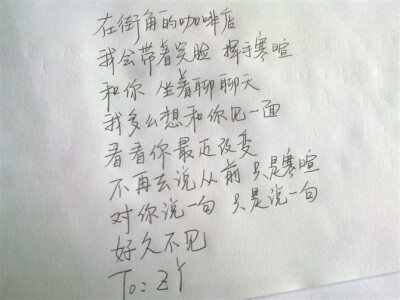 在街角的咖啡店
我会带着笑脸 挥手寒暄
和你 坐着聊聊天
我多么想和你见一面
看看你最近改变
不再去说从前 只是寒暄
对你说一句 只是说一句
好久不见
To: ZY